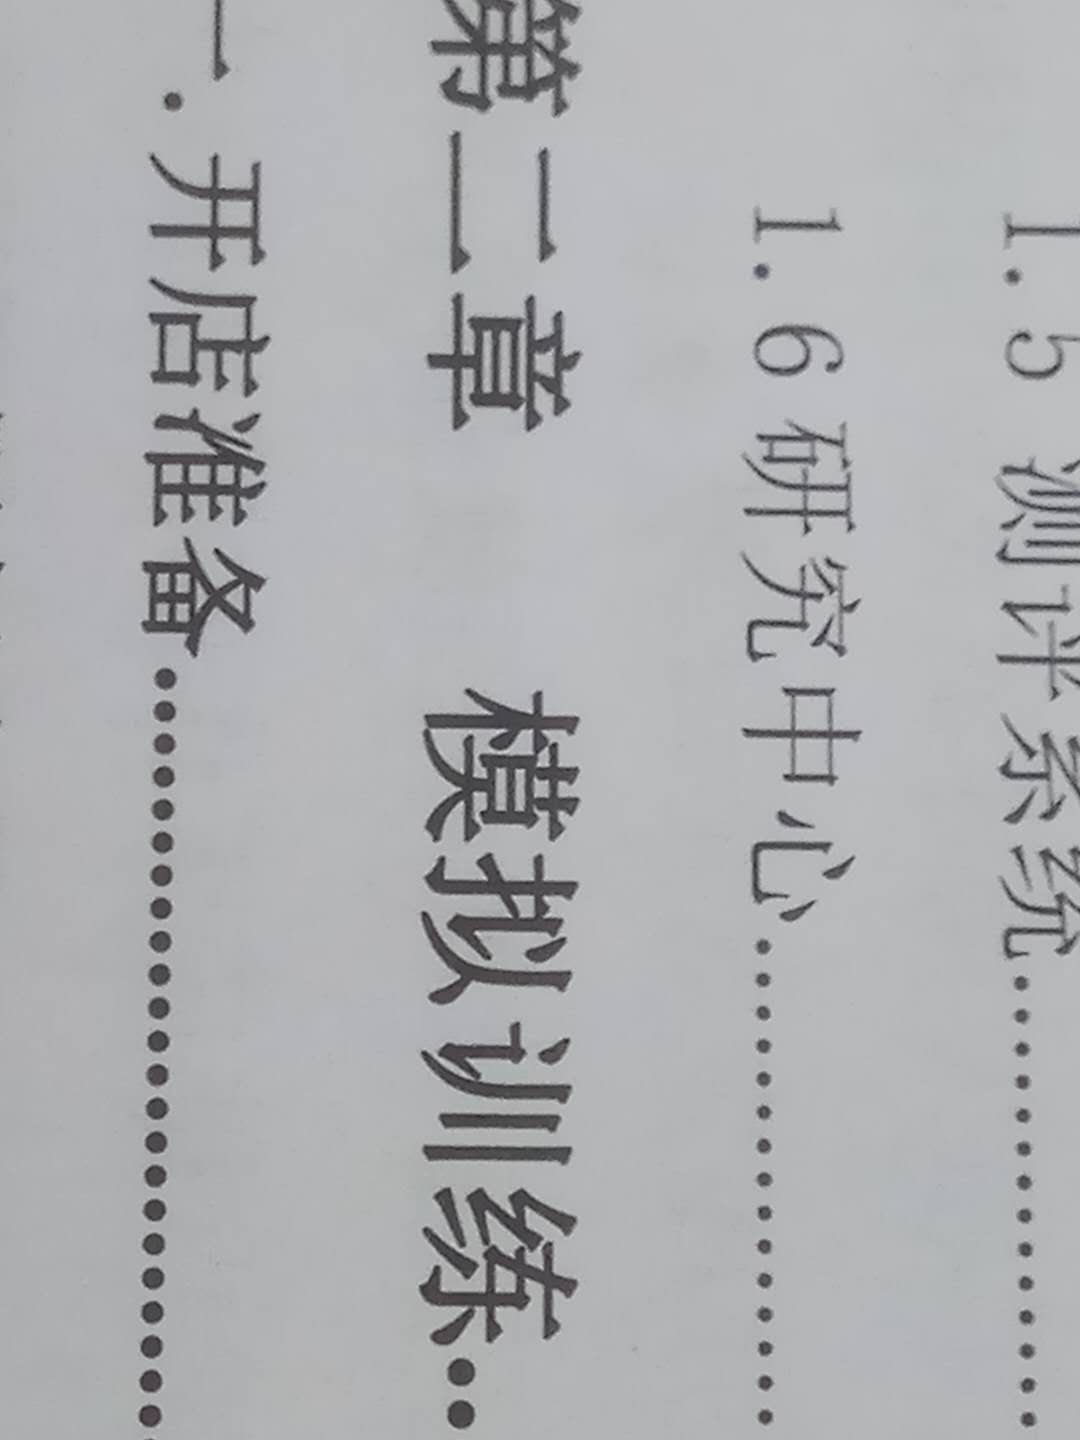 1.5 测评系统……………
1.6 研究中心……………
第二章 模拟训练…
一.开店准备……………………